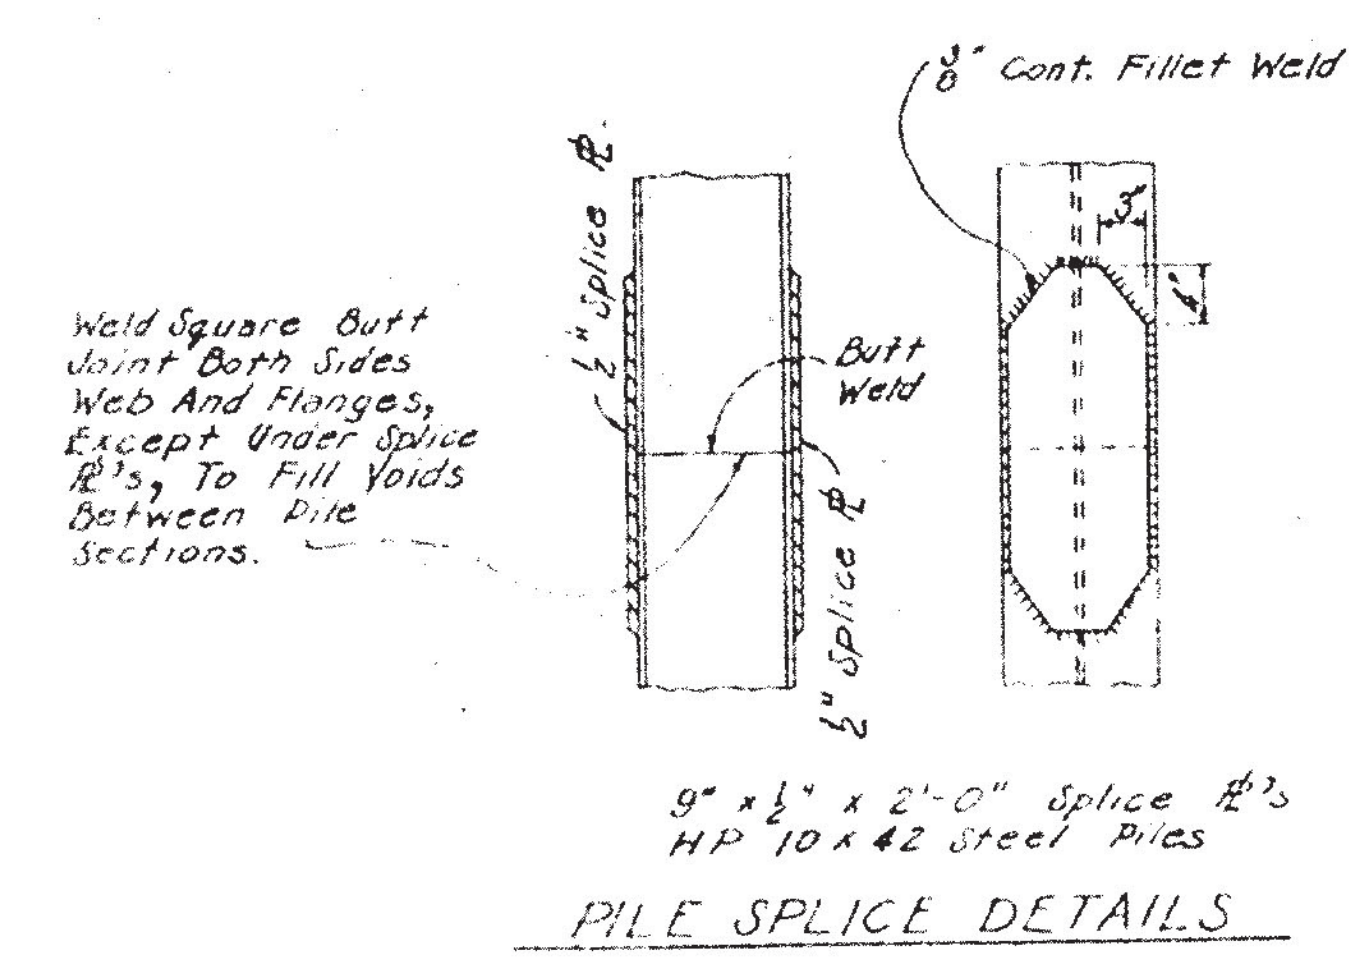 3/8" Cont. Fillet Weld
1/2" Splice ℄
3"
4"
Weld Square Butt
Joint Both Sides
Web And Flanges,
Except Under Splice
℄'s, To Fill Voids
Between Pile
Sections.
Butt
Weld
1/2" Splice ℄
9" x 1/2" x 2'-0" Splice ℄'s
HP 10 x 42 Steel Piles
PILE SPLICE DETAILS